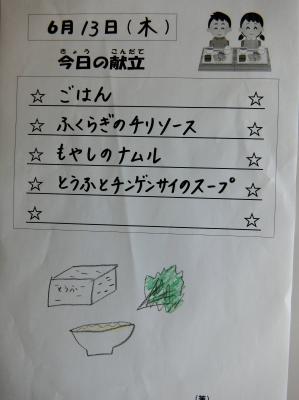 6月13日(木)
きょう こんだて
今日の献立
☆ ごはん ☆
☆ ふくらぎのチリソース ☆
☆ もやしのナムル ☆
☆ とうふとチンゲンサイのスープ ☆
☆ ☆
とうふ